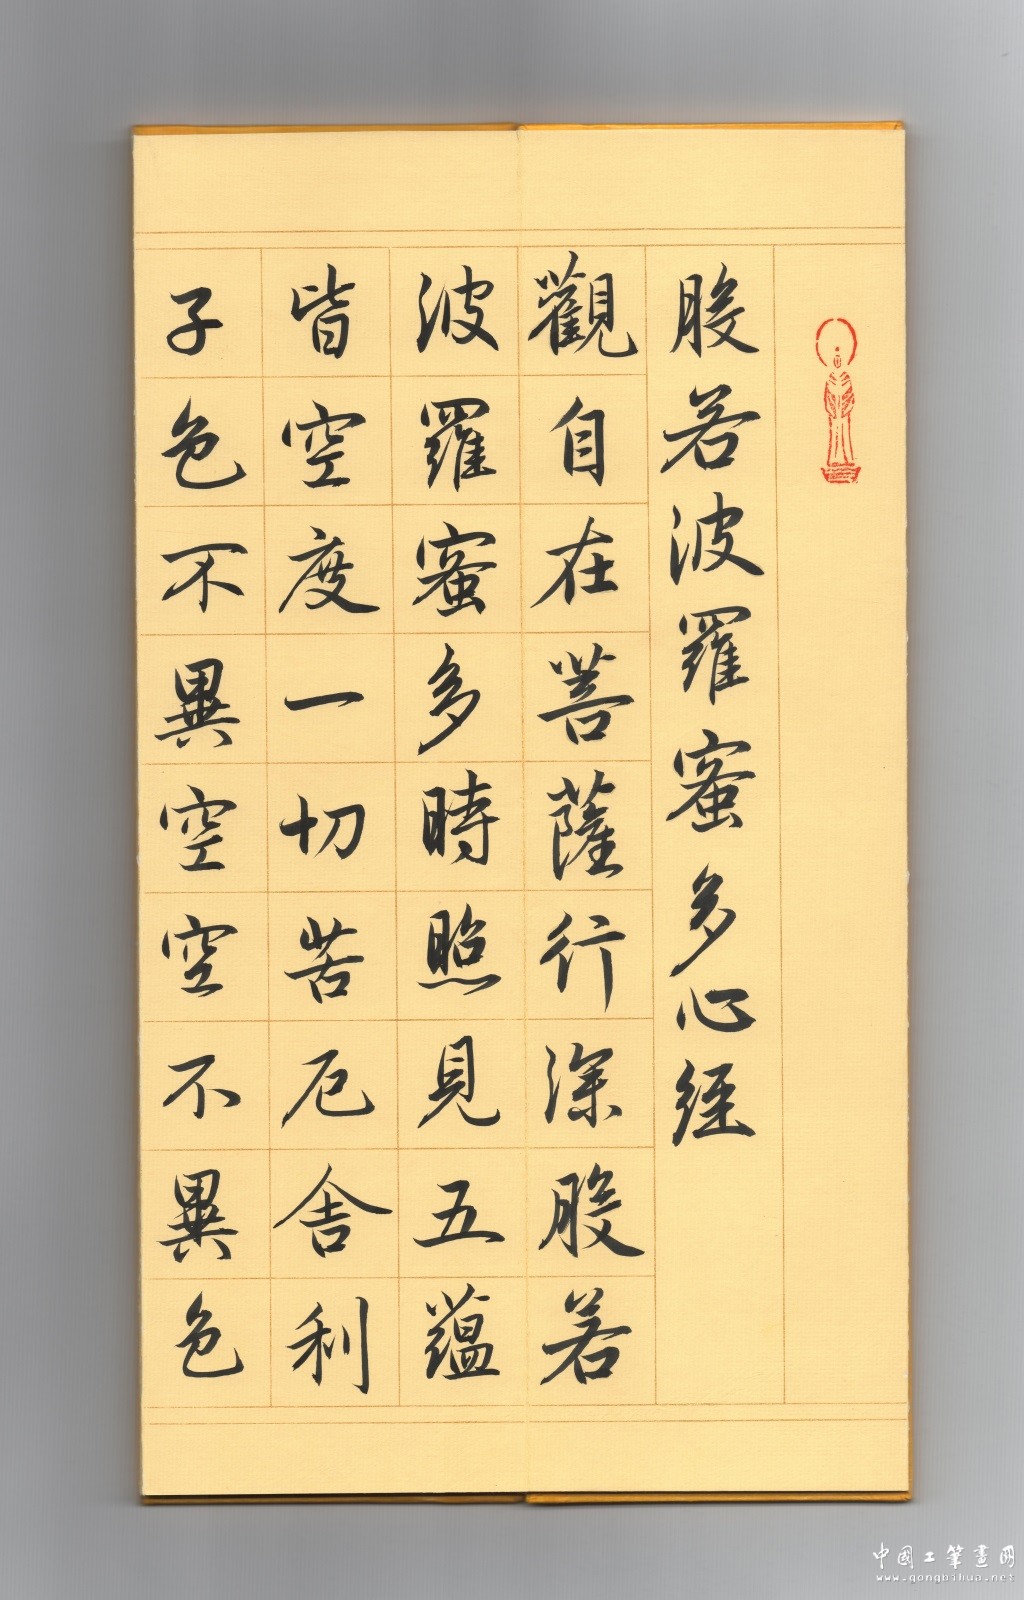 般若波羅蜜多心経
觀自在菩薩行深般若
波羅蜜多時照見五蘊
皆空度一切苦厄舎利
子色不異空空不異色
中国工筆畫网
www.gongbihua.net